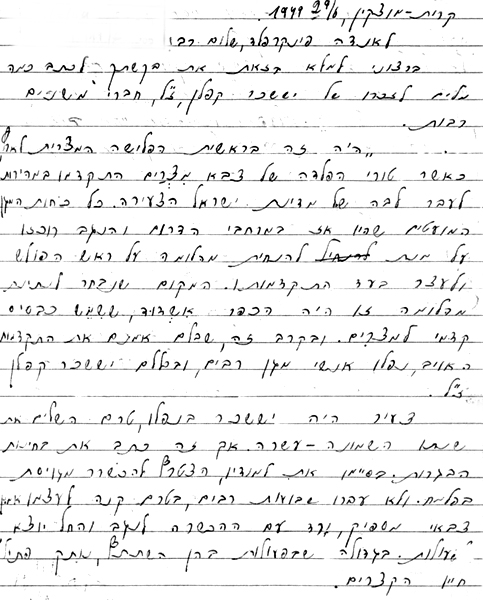 קרית-מוצקין, 29/6 1949.
לאנדה פינקרפלד, שלום רב!
ברצוני למלא בזאת את בקשתך לכתב כמה
מלים לזכרו של יששכר קפלן, ז"ל, חברי משנים
רבות.
"היה זה בראשית הפלישה המצרית לארץ
כאשר טורי הפלדה של צבא מצרים התקדמו במהירות
לעבר לבה של מדינת ישראל הצעירה. כל כוחות המגן
המועטים שהיו אז במרחבי הדרום והנגב רוכזו
על מנת להנחית מהלומה על ראש הפולש
ולעצר בעד התקדמותו. המקום שנבחר לנתינת
מהלומה זו היה הכפר אשדוד, ששמש כבסיס
קדמי למצרים. ובקרב זה, שבלם אמנם את התקדמות
האויב, נפלו אנשי מגן רבים, ובכללם יששכר קפלן
ז"ל.
צעיר היה יששכר בנפלו, טרם השלים את
שנתו השמונה-עשרה. אך זה כתב את בחינות
הבגרות. בסיימו את למודיו, הצטרף להכשרה מגויסת
בפלמח. ולא עברו שבועות רבים, בטרם קנה לעצמו אמון
צבאי מספיק, וירד עם ההכשרה לנגב והחל יוצא
לפעולות. בגדולה שבפעולות בהן השתתף, נותק פתיל
חייו הקצרים.